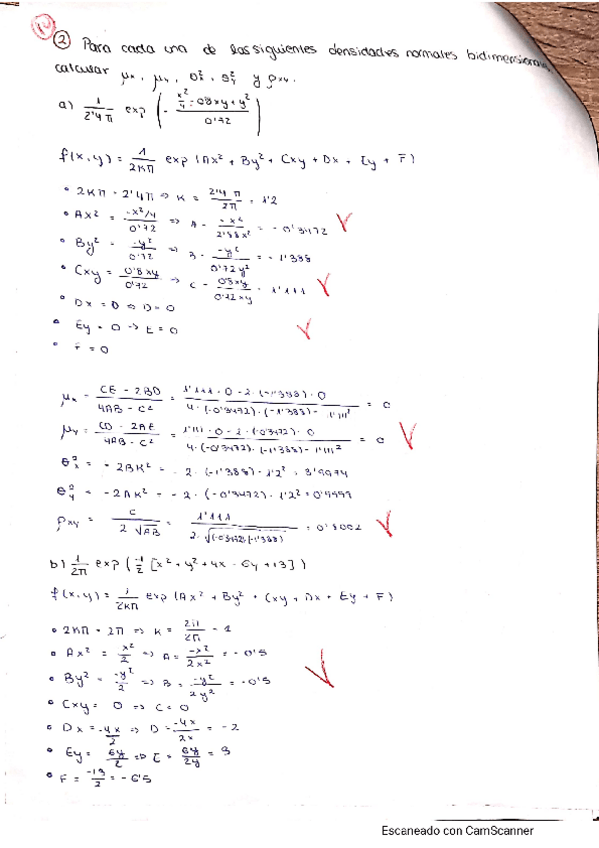 ② Para cada una de las siguientes densidades normales bidimensionales,
calcular μx, μy, σ²x, σ²y y ρxy.
a) 1/2'4π exp (- (x²/4 - 0'8xy + y²)/0'72)
f(x,y) = 1/2Kπ exp (Ax² + By² + Cxy + Dx + Ey + F)
• 2Kπ = 2'4π => K = 2'4π/2π = 1'2
• Ax² = -x²/4/0'72 => A = -x²/2'88x² = -0'3472
• By² = -y²/0'72 => B = -y²/0'72y² = -1'388
• Cxy = 0'8xy/0'72 -> C = 0'8xy/0'72xy = 1'111
• Dx = 0 => D = 0
• Ey = 0 -> E = 0
• F = 0
μx = (CE - 2BD)/(4AB - C²) = (1'111 · 0 - 2 · (-1'388) · 0)/(4 · (-0'3472) · (-1'388) - 1'111²) = 0
μy = (CD - 2AE)/(4AB - C²) = (1'111 · 0 - 2 · (-0'3472) · 0)/(4 · (-0'3472) · (-1'388) - 1'111²) = 0
σ²x = -2BK² = -2 · (-1'388) · 1'2² = 3'9974
σ²y = -2AK² = -2 · (-0'3472) · 1'2² = 0'9999
ρxy = C/2√AB = 1'111/2·√(-0'3472)(-1'388) = 0'8002
b) 1/2π exp (-1/2 [x² + y² + 4x - 6y + 13])
f(x,y) = 1/2Kπ exp (Ax² + By² + Cxy + Dx + Ey + F)
• 2Kπ = 2π => K = 2π/2π = 1
• Ax² = x²/2 => A = -x²/2x² = -0'5
• By² = -y²/2 => B = -y²/2y² = -0'5
• Cxy = 0 => C = 0
• Dx = -4x/2 => D = -4x/2x = -2
• Ey = 6y/2 => E = 6y/2y = 3
• F = -13/2 = -6'5
Escaneado con CamScanner